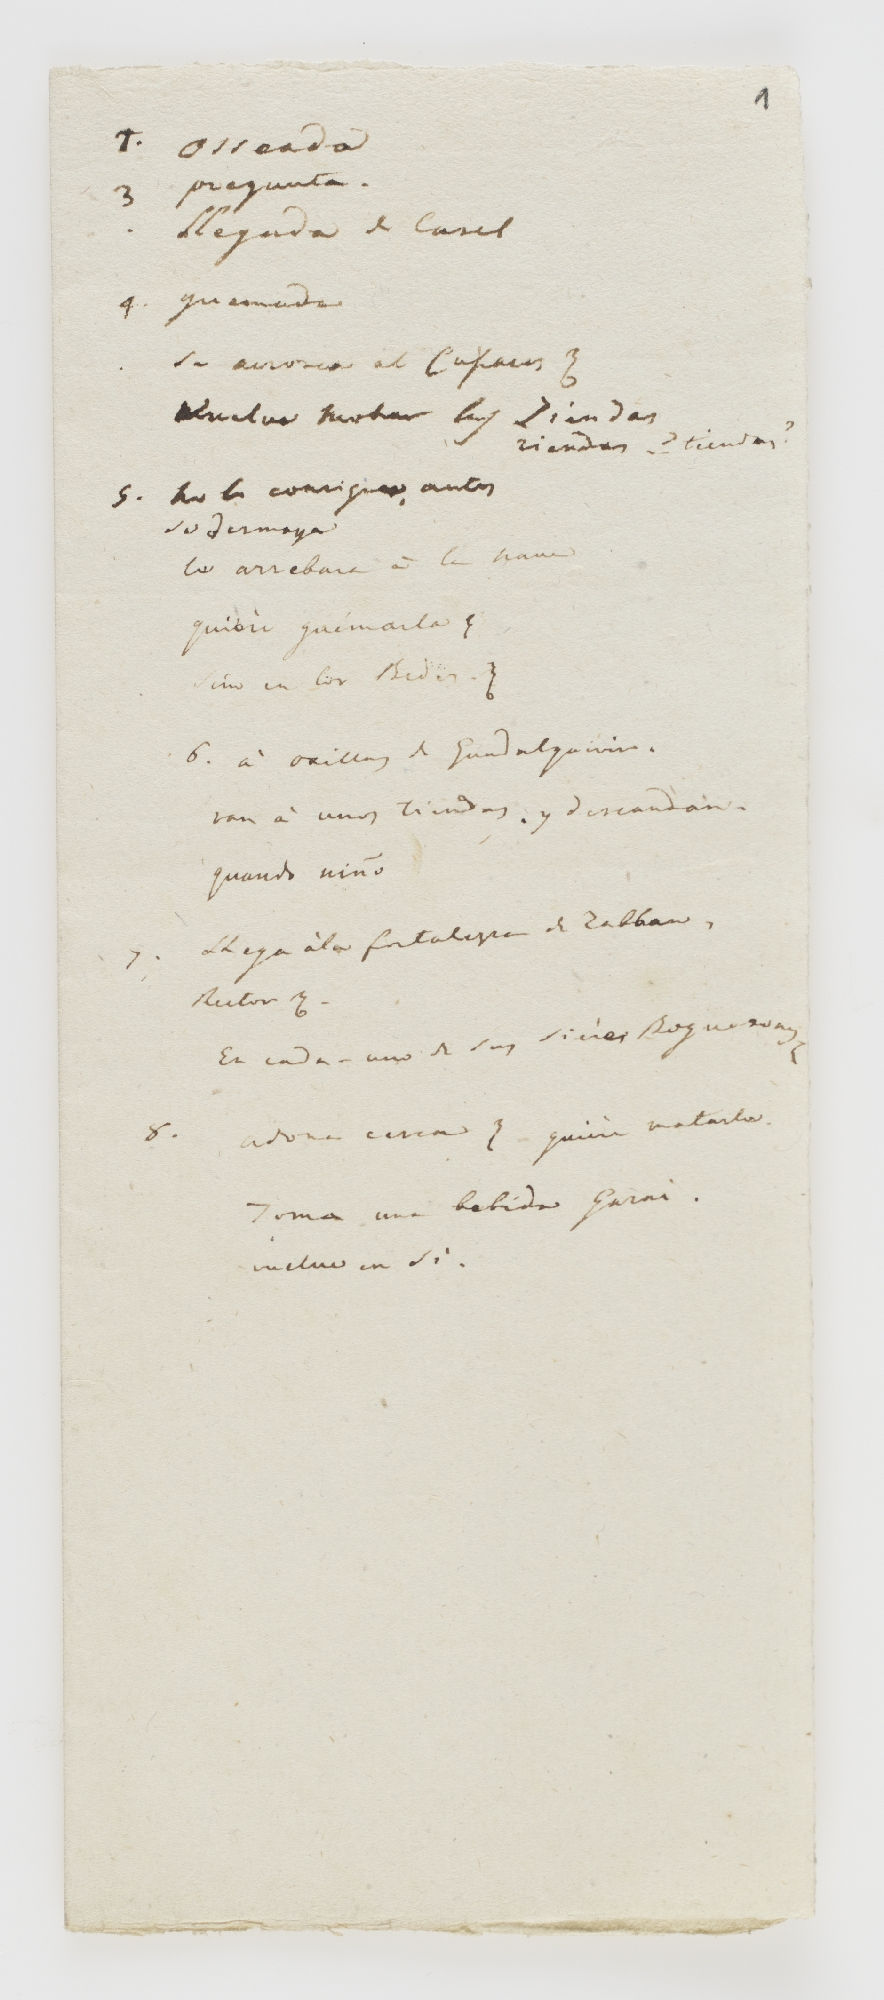 1
1. osseada
3 pregunta.
. Llegada de Casel
4. quemada
. se arrosca al
Vuelve las Ziendas
riendas ? tiendas?
5. no lo consigue, antes
se desmaya
lo arrebata à la nave
quiere quemarla
sino en los
6. à orillas de Guadalquivir.
van à unos tiendas. y descandan.
quando niño
7. Llega àla fortaleza de Zabban,
Rector
En cada uno de sus
8. adona cerca quiere matarlo.
Toma una bebida
vuelve en si.